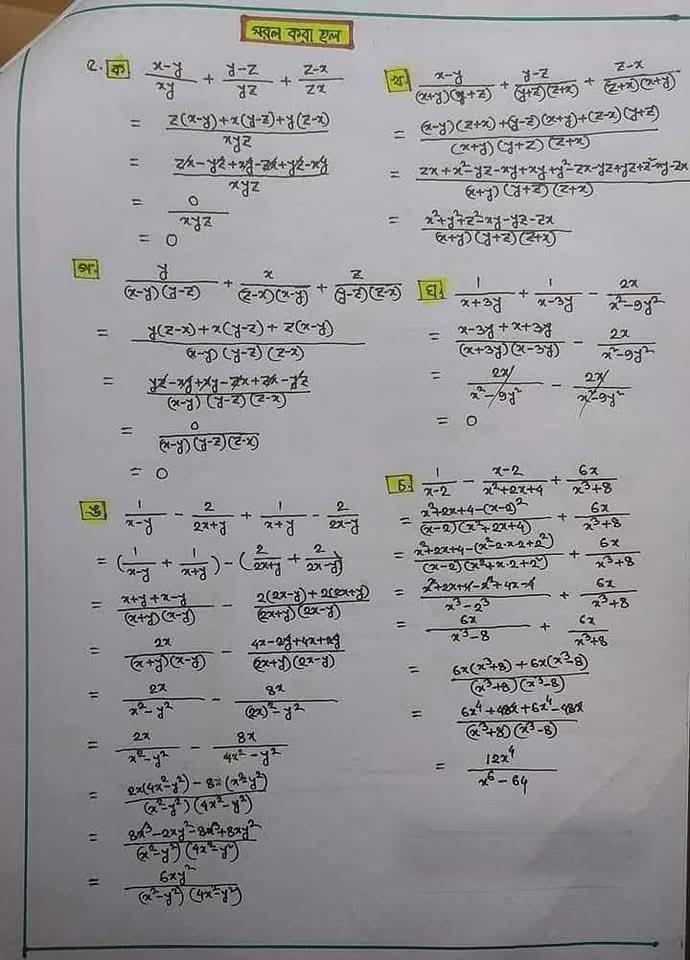 সরল করা হল
২. ক (x-y)/(xy) + (y-z)/(yz) + (z-x)/(zx)
= (z(x-y)+x(y-z)+y(z-x))/(xyz)
= (zx-yz+xy-zx+yz-xy)/(xyz)
= 0/(xyz)
= 0
খ. (x-y)/((x+y)(y+z)) + (y-z)/((y+z)(z+x)) + (z-x)/((z+x)(x+y))
= ((x-y)(z+x)+(y-z)(x+y)+(z-x)(y+z))/((x+y)(y+z)(z+x))
= (zx+x²-yz-xy+xy+y²-zx-yz+yz+z²-xy-zx)/((x+y)(y+z)(z+x))
= (x²+y²+z²-xy-yz-zx)/((x+y)(y+z)(z+x))
গ. y/((x-y)(y-z)) + x/((z-x)(x-y)) + z/((y-z)(z-x))
= (y(z-x)+x(y-z)+z(x-y))/((x-y)(y-z)(z-x))
= (yz-xy+xy-zx+zx-yz)/((x-y)(y-z)(z-x))
= 0/((x-y)(y-z)(z-x))
= 0
ঘ. 1/(x+3y) + 1/(x-3y) - 2x/(x²-9y²)
= (x-3y+x+3y)/((x+3y)(x-3y)) - 2x/(x²-9y²)
= 2x/(x²-9y²) - 2x/(x²-9y²)
= 0
ঙ 1/(x-y) - 2/(2x+y) + 1/(x+y) - 2/(2x-y)
= (1/(x-y) + 1/(x+y)) - (2/(2x+y) + 2/(2x-y))
= (x+y+x-y)/((x+y)(x-y)) - (2(2x-y)+2(2x+y))/((2x+y)(2x-y))
= 2x/((x+y)(x-y)) - (4x-2y+4x+2y)/((2x+y)(2x-y))
= 2x/(x²-y²) - 8x/((2x)²-y²)
= 2x/(x²-y²) - 8x/(4x²-y²)
= (2x(4x²-y²)-8x(x²-y²))/((x²-y²)(4x²-y²))
= (8x³-2xy²-8x³+8xy²)/((x²-y²)(4x²-y²))
= 6xy²/((x²-y²)(4x²-y²))
চ. 1/(x-2) - (x-2)/(x²+2x+4) + 6x/(x³+8)
= (x²+2x+4-(x-2)²)/((x-2)(x²+2x+4)) + 6x/(x³+8)
= (x²+2x+4-(x²-2·x·2+2²))/((x-2)(x²+x·2+2²)) + 6x/(x³+8)
= (x²+2x+4-x²+4x-4)/(x³-2³) + 6x/(x³+8)
= 6x/(x³-8) + 6x/(x³+8)
= (6x(x³+8)+6x(x³-8))/((x³+8)(x³-8))
= (6x⁴+48x+6x⁴-48x)/((x³+8)(x³-8))
= 12x⁴/(x⁶-64)